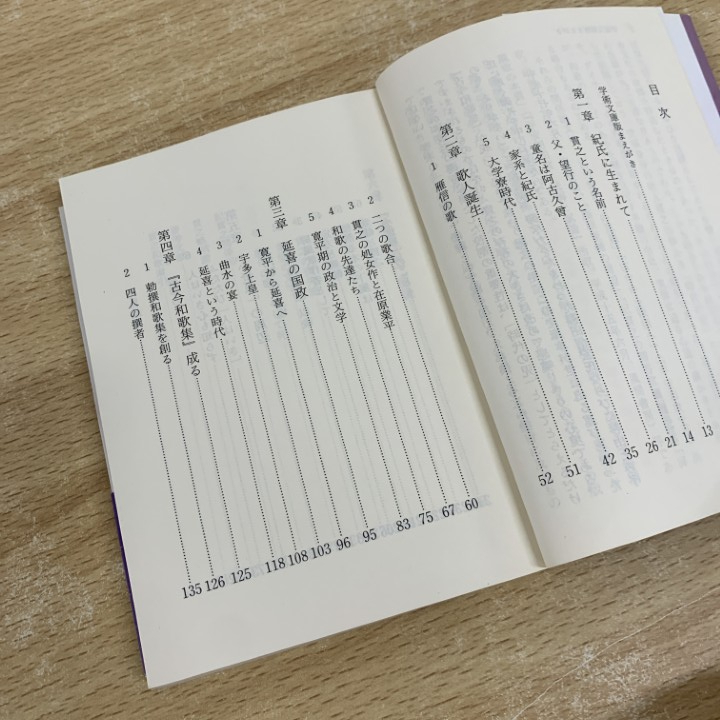 目次
学術文庫版まえがき
第一章 紀氏に生まれて 13
1 貫之という名前 14
2 父・望行のこと 21
3 童名は阿古久曾 26
4 家系と紀氏 35
5 大学寮時代 42
第二章 歌人誕生 51
1 雁信の歌 52
2 二つの歌合 60
3 貫之の処女作と在原業平 67
4 和歌の先達たち 75
5 寛平期の政治と文学 83
第三章 延喜の国政 95
1 寛平から延喜へ 96
2 宇多上皇 103
3 曲水の宴 108
4 延喜という時代 118
第四章 『古今和歌集』成る 125
1 勅撰和歌集を創る 126
2 四人の撰者 135